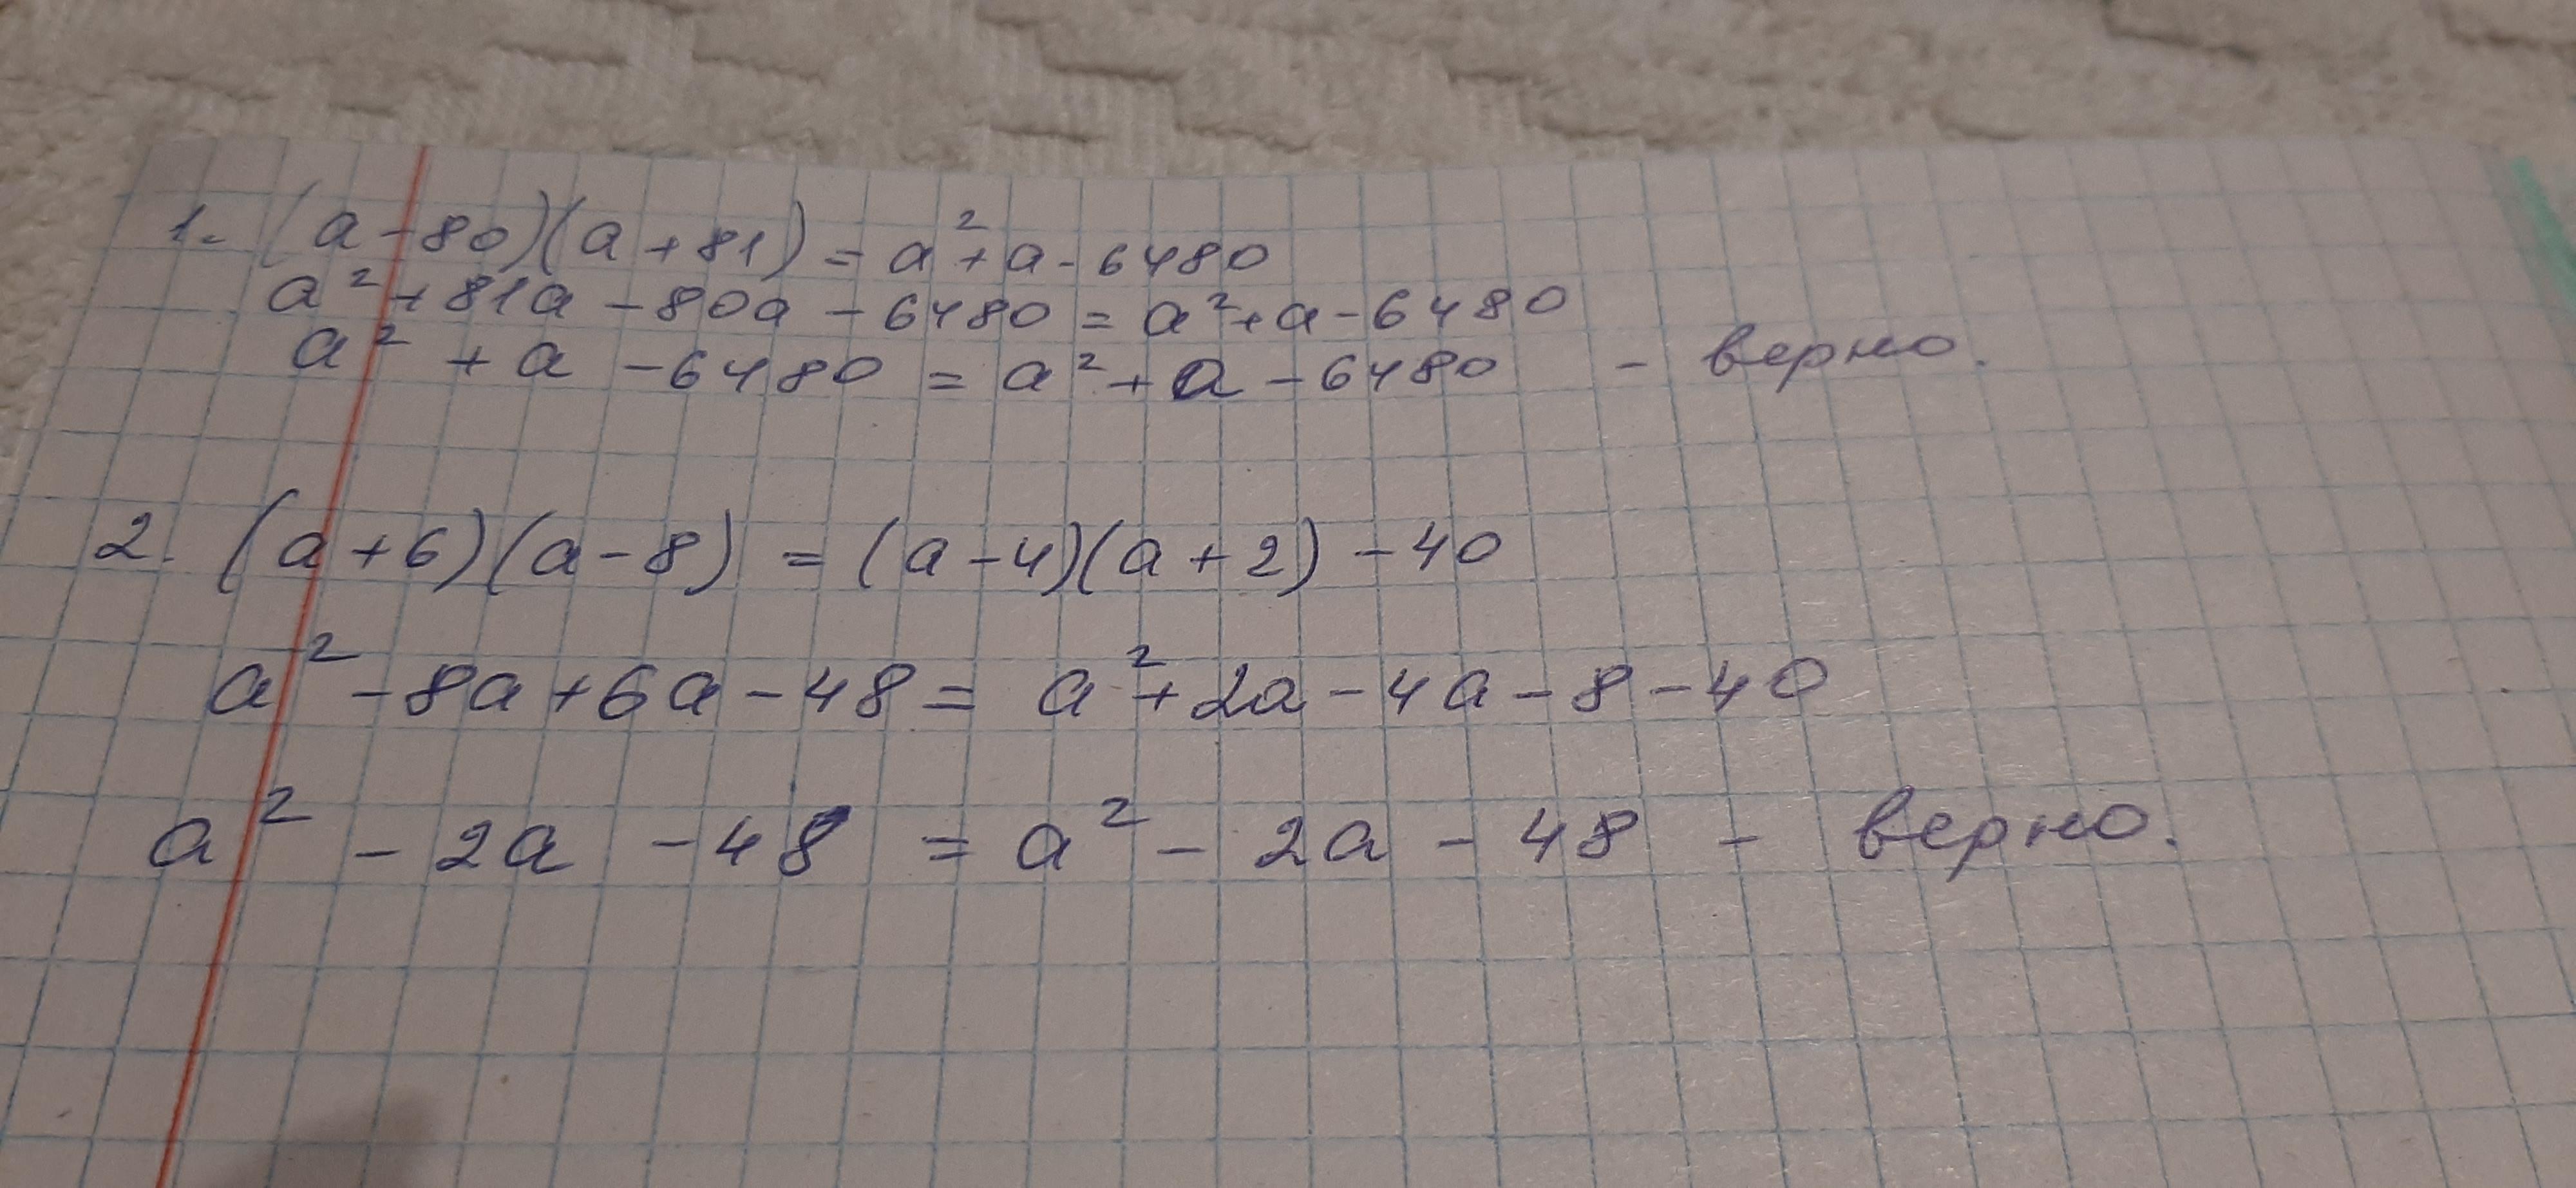 1. (a-80)(a+81) = a²+a-6480
a²+81a-80a-6480 = a²+a-6480
a² + a -6480 = a²+a-6480 - верно.
2. (a+6)(a-8) = (a-4)(a+2)-40
a²-8a+6a-48 = a²+2a-4a-8-40
a² - 2a -48 = a² - 2a - 48 - верно.